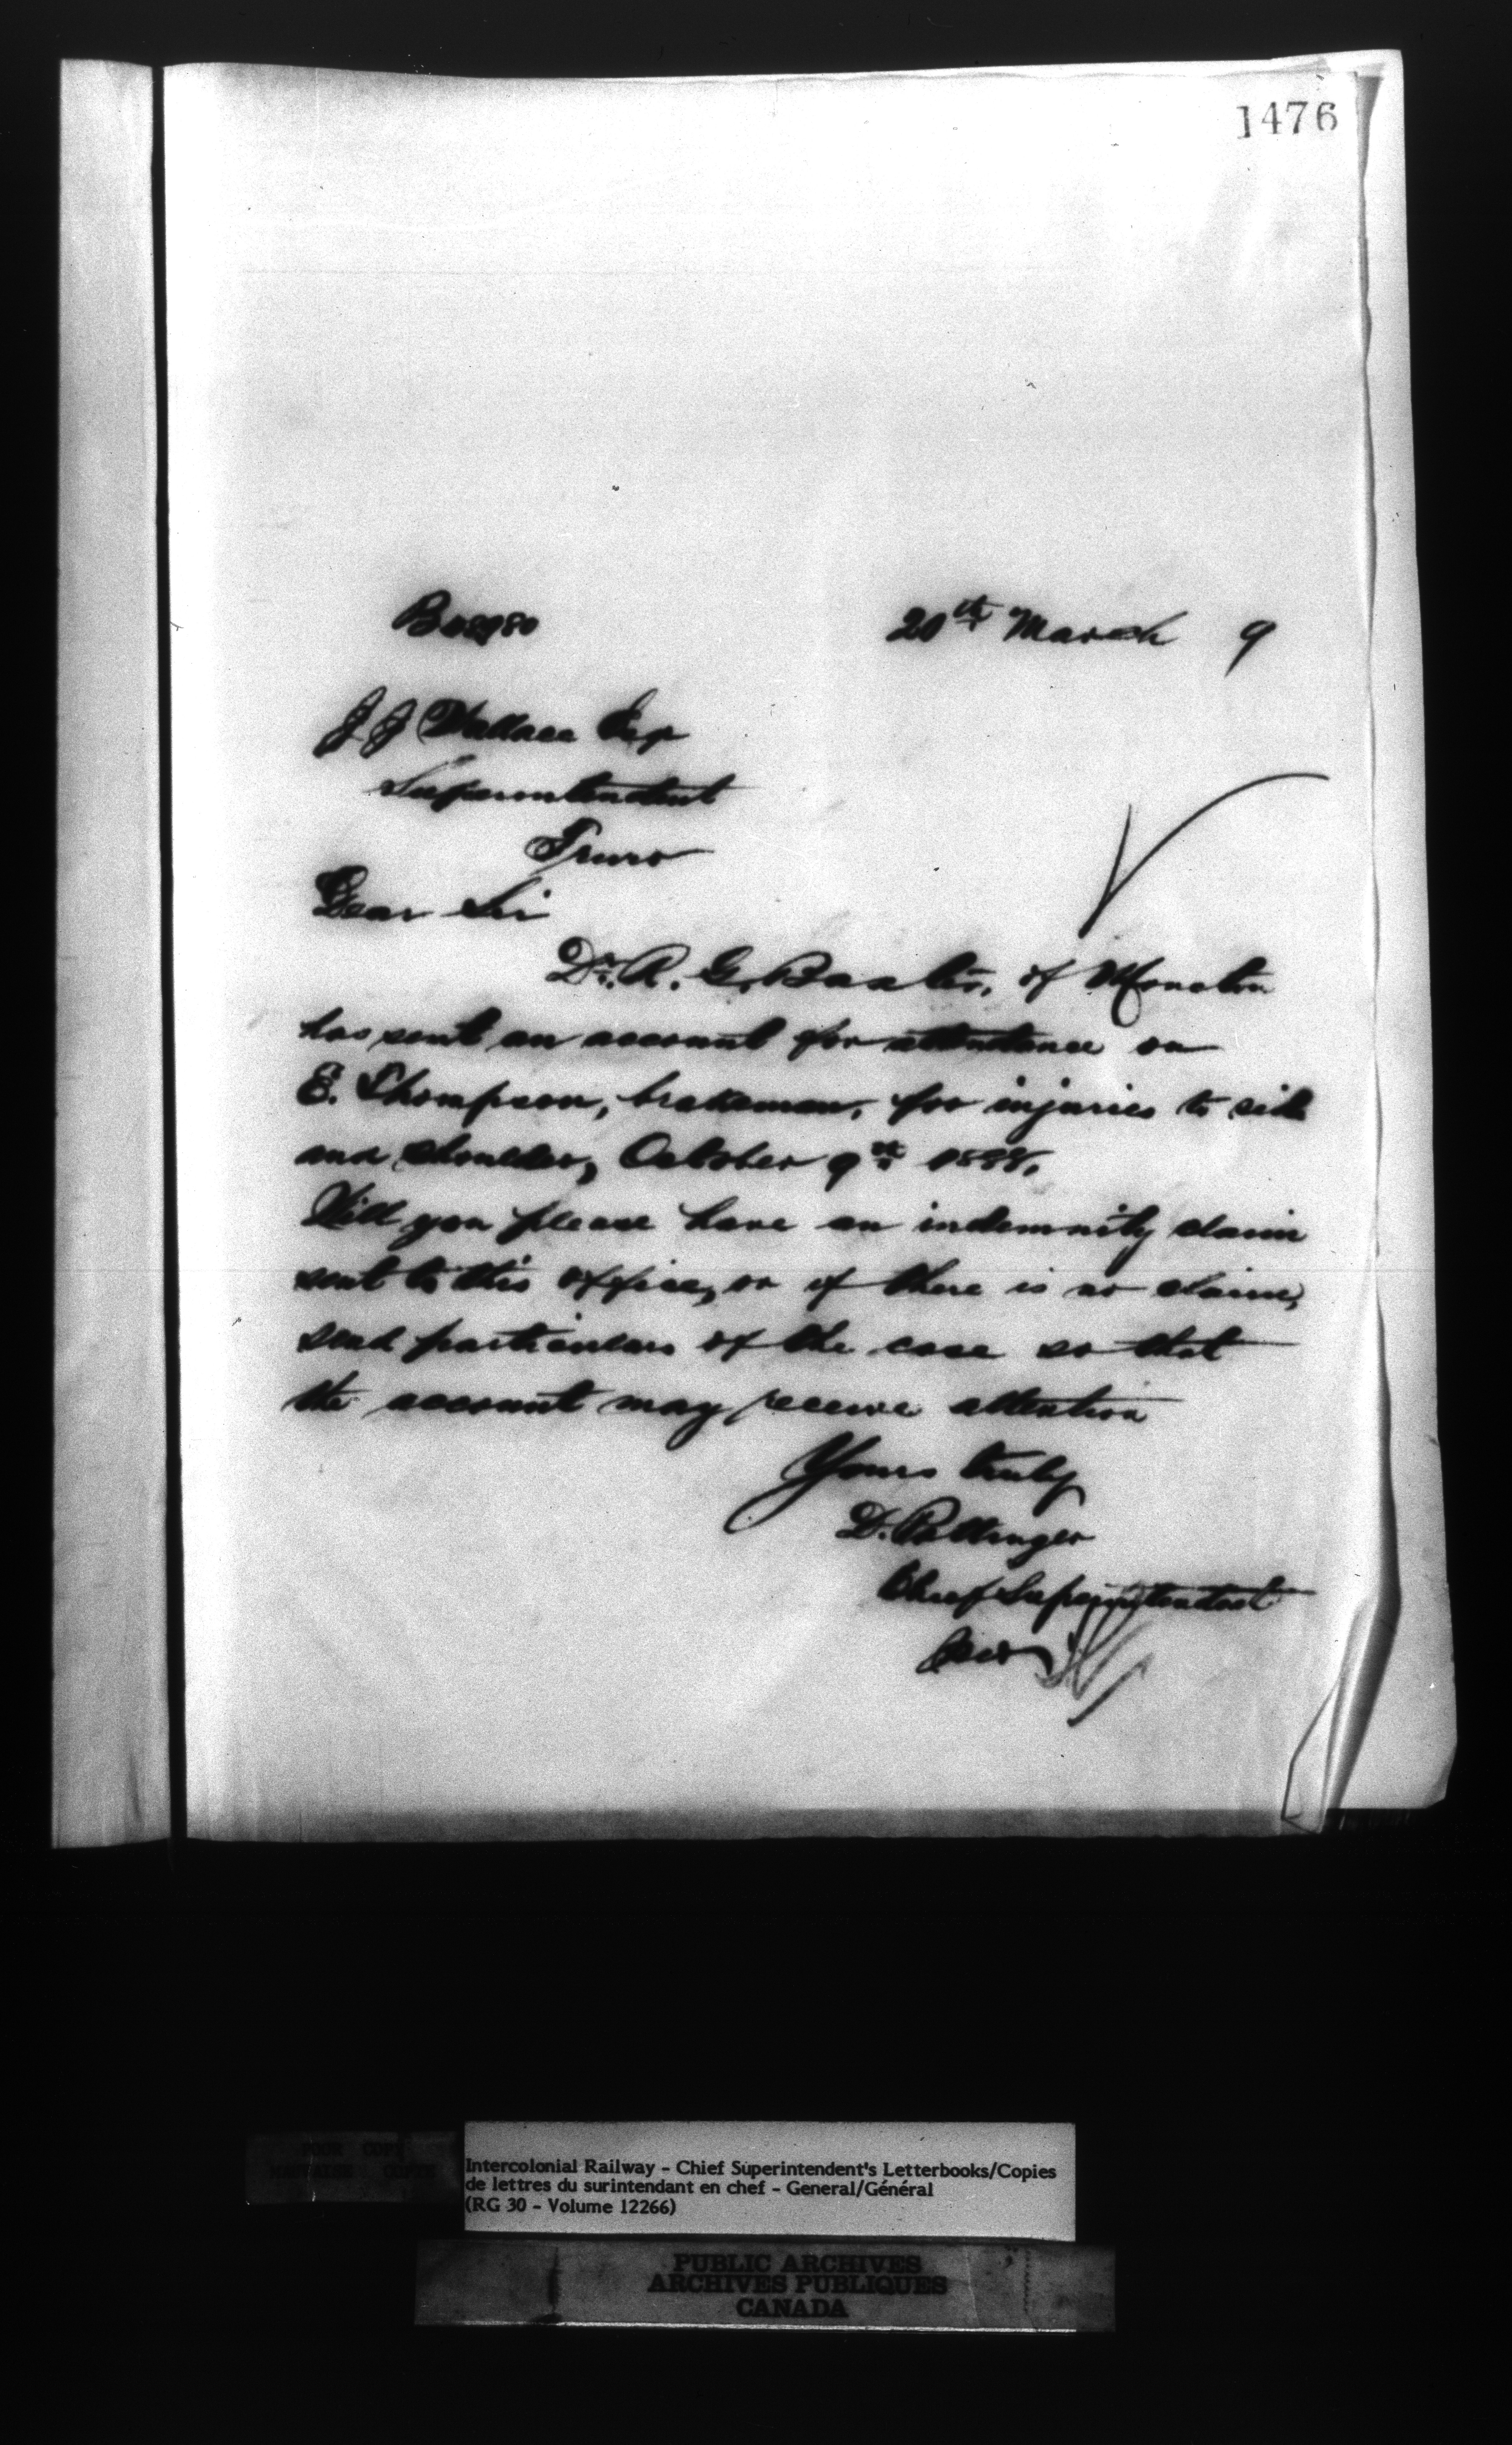 1476
20th March 9
J J Wallace Esq
Superintendent
Truro
Dear Sir
Dr. R. G. Baxter, of Moncton
has sent an account for attendance on
E. Thompson, brakeman, for injuries to side
and shoulder, October 9th 1888.
Will you please have an indemnity claim
sent to this office, or if there is no claim,
send particulars of the case so that
the account may receive attention
Yours truly
D. Pottinger
Chief Superintendent
POOR COPY
MAUVAISE COPIE
Intercolonial Railway - Chief Superintendent's Letterbooks/Copies
de lettres du surintendant en chef - General/Général
(RG 30 - Volume 12266)
PUBLIC ARCHIVES
ARCHIVES PUBLIQUES
CANADA